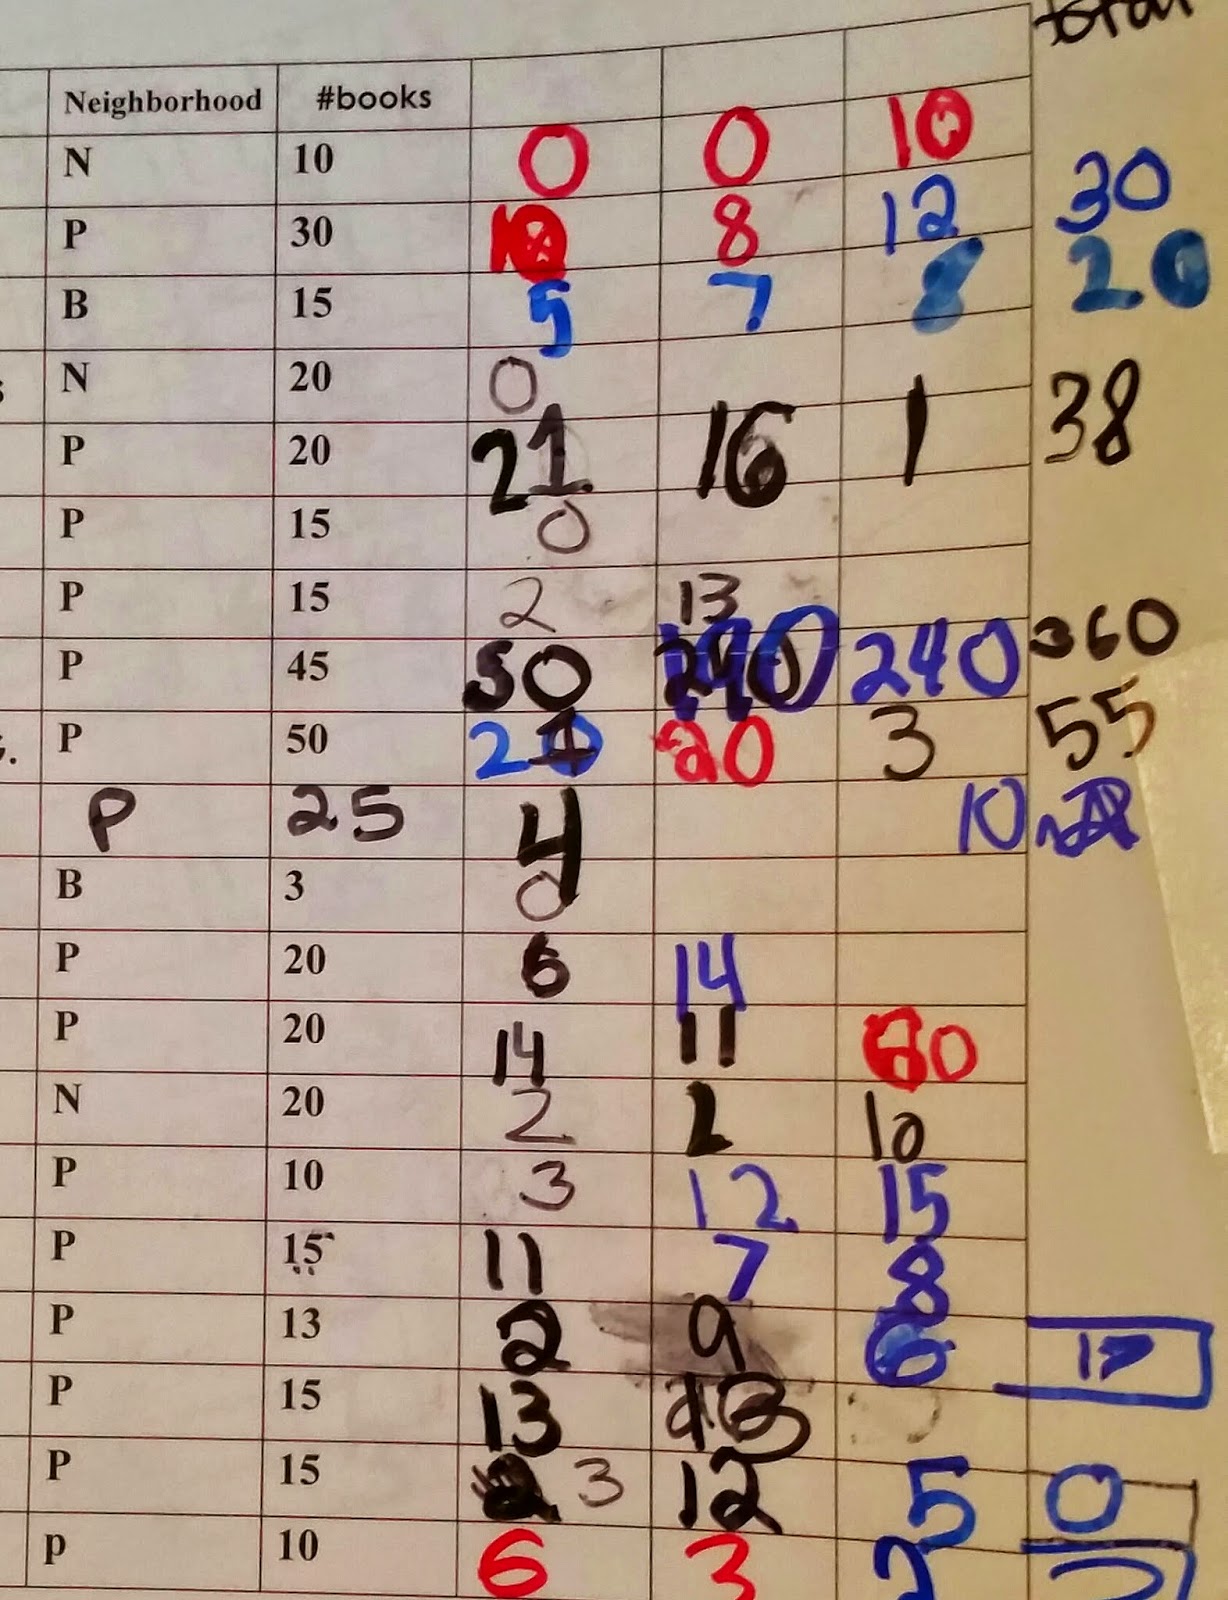 total
Neighborhood #books
N 10 0 0 10
P 30 8 12 30
B 15 5 7 8 20
N 20 0
P 20 21 16 1 38
P 15 0
P 15 2 13
P 45 50 240 360
P 50 20 3 55
P 25 4 10
B 3 0
P 20 6 14
P 20 14 11
N 20 2 2 10
P 10 3 12 15
P 15 11 7 8
P 13 2 9 6
P 15 13
P 15 3 12 5 0
p 10 6 3 2